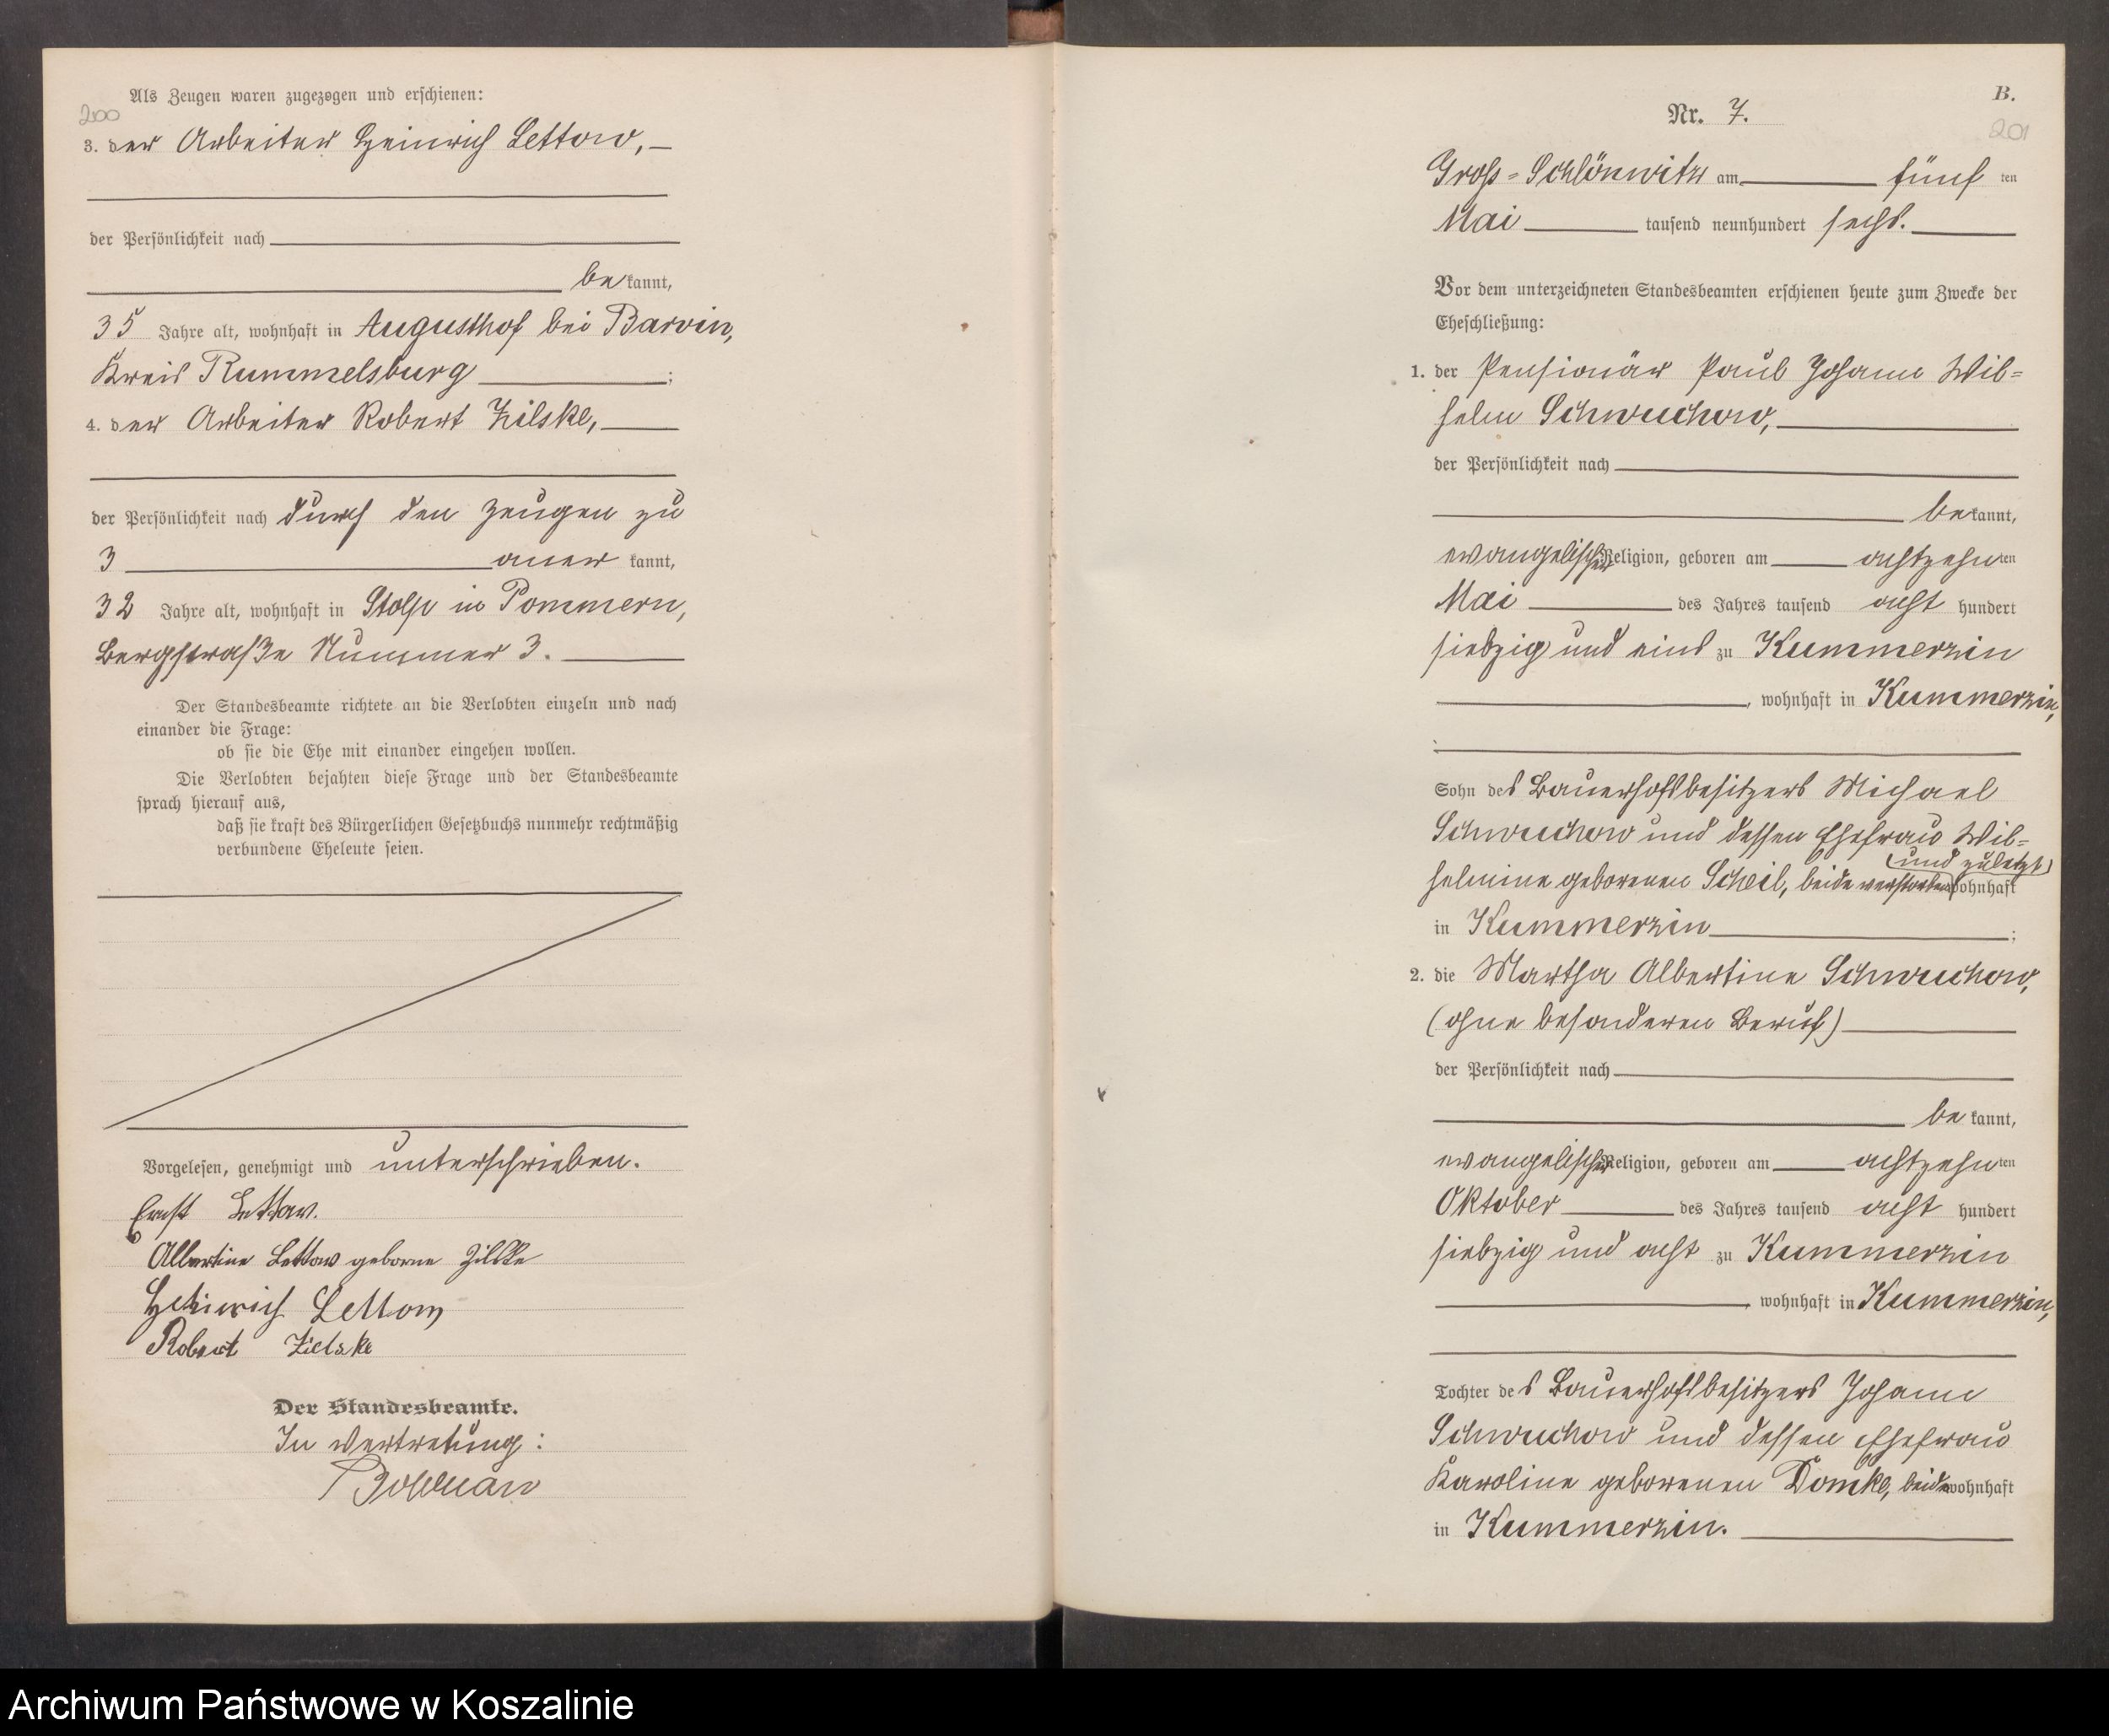 Als Zeugen waren zugezogen und erschienen:
200
3. der Arbeiter Heinrich Lettow,
der Persönlichkeit nach
bekannt,
35 Jahre alt, wohnhaft in Augusthof bei Barvin,
Kreis Rummelsburg;
4. der Arbeiter Robert Zilske,
der Persönlichkeit nach durch den Zeugen zu
3 aner kannt,
32 Jahre alt, wohnhaft in Stolp in Pommern,
Bergstraße Nummer 3.
Der Standesbeamte richtete an die Verlobten einzeln und nach
einander die Frage:
ob sie die Ehe mit einander eingehen wollen.
Die Verlobten bejahten diese Frage und der Standesbeamte
sprach hierauf aus,
daß sie kraft des Bürgerlichen Gesetzbuchs nunmehr rechtmäßig
verbundene Eheleute seien.
Vorgelesen, genehmigt und unterschrieben.
Ernst Lettow.
Albertine Lettow geborne Zilske
Heinrich Lettow
Robert Zielske
Der Standesbeamte.
In Vertretung:
B.
Nr. 7.
201
Groß-Schlönwitz am fünf ten
Mai tausend neunhundert sechs.
Vor dem unterzeichneten Standesbeamten erschienen heute zum Zwecke der
Eheschließung:
1. der Pensionär Paul Johann Wil=
helm Schwuchow,
der Persönlichkeit nach
bekannt,
evangelischer Religion, geboren am achtzehnten
Mai des Jahres tausend acht hundert
siebzig und eins zu Kummerzin
, wohnhaft in Kummerzin,
Sohn des Bauerhofsbesitzers Michael
Schwuchow und dessen Ehefrau Wil=
(und zuletzt)
helmine geborenen Scheil, beide verstorben wohnhaft
in Kummerzin;
2. die Martha Albertine Schwuchow,
(ohne besonderen Beruf)
der Persönlichkeit nach
be kannt,
evangelischer Religion, geboren am achtzehnten
Oktober des Jahres tausend acht hundert
siebzig und acht zu Kummerzin
, wohnhaft in Kummerzin,
Tochter des Bauerhofsbesitzers Johann
Schwuchow und dessen Ehefrau
Karoline geborenen Domke, beide wohnhaft
in Kummerzin.
Archiwum Państwowe w Koszalinie